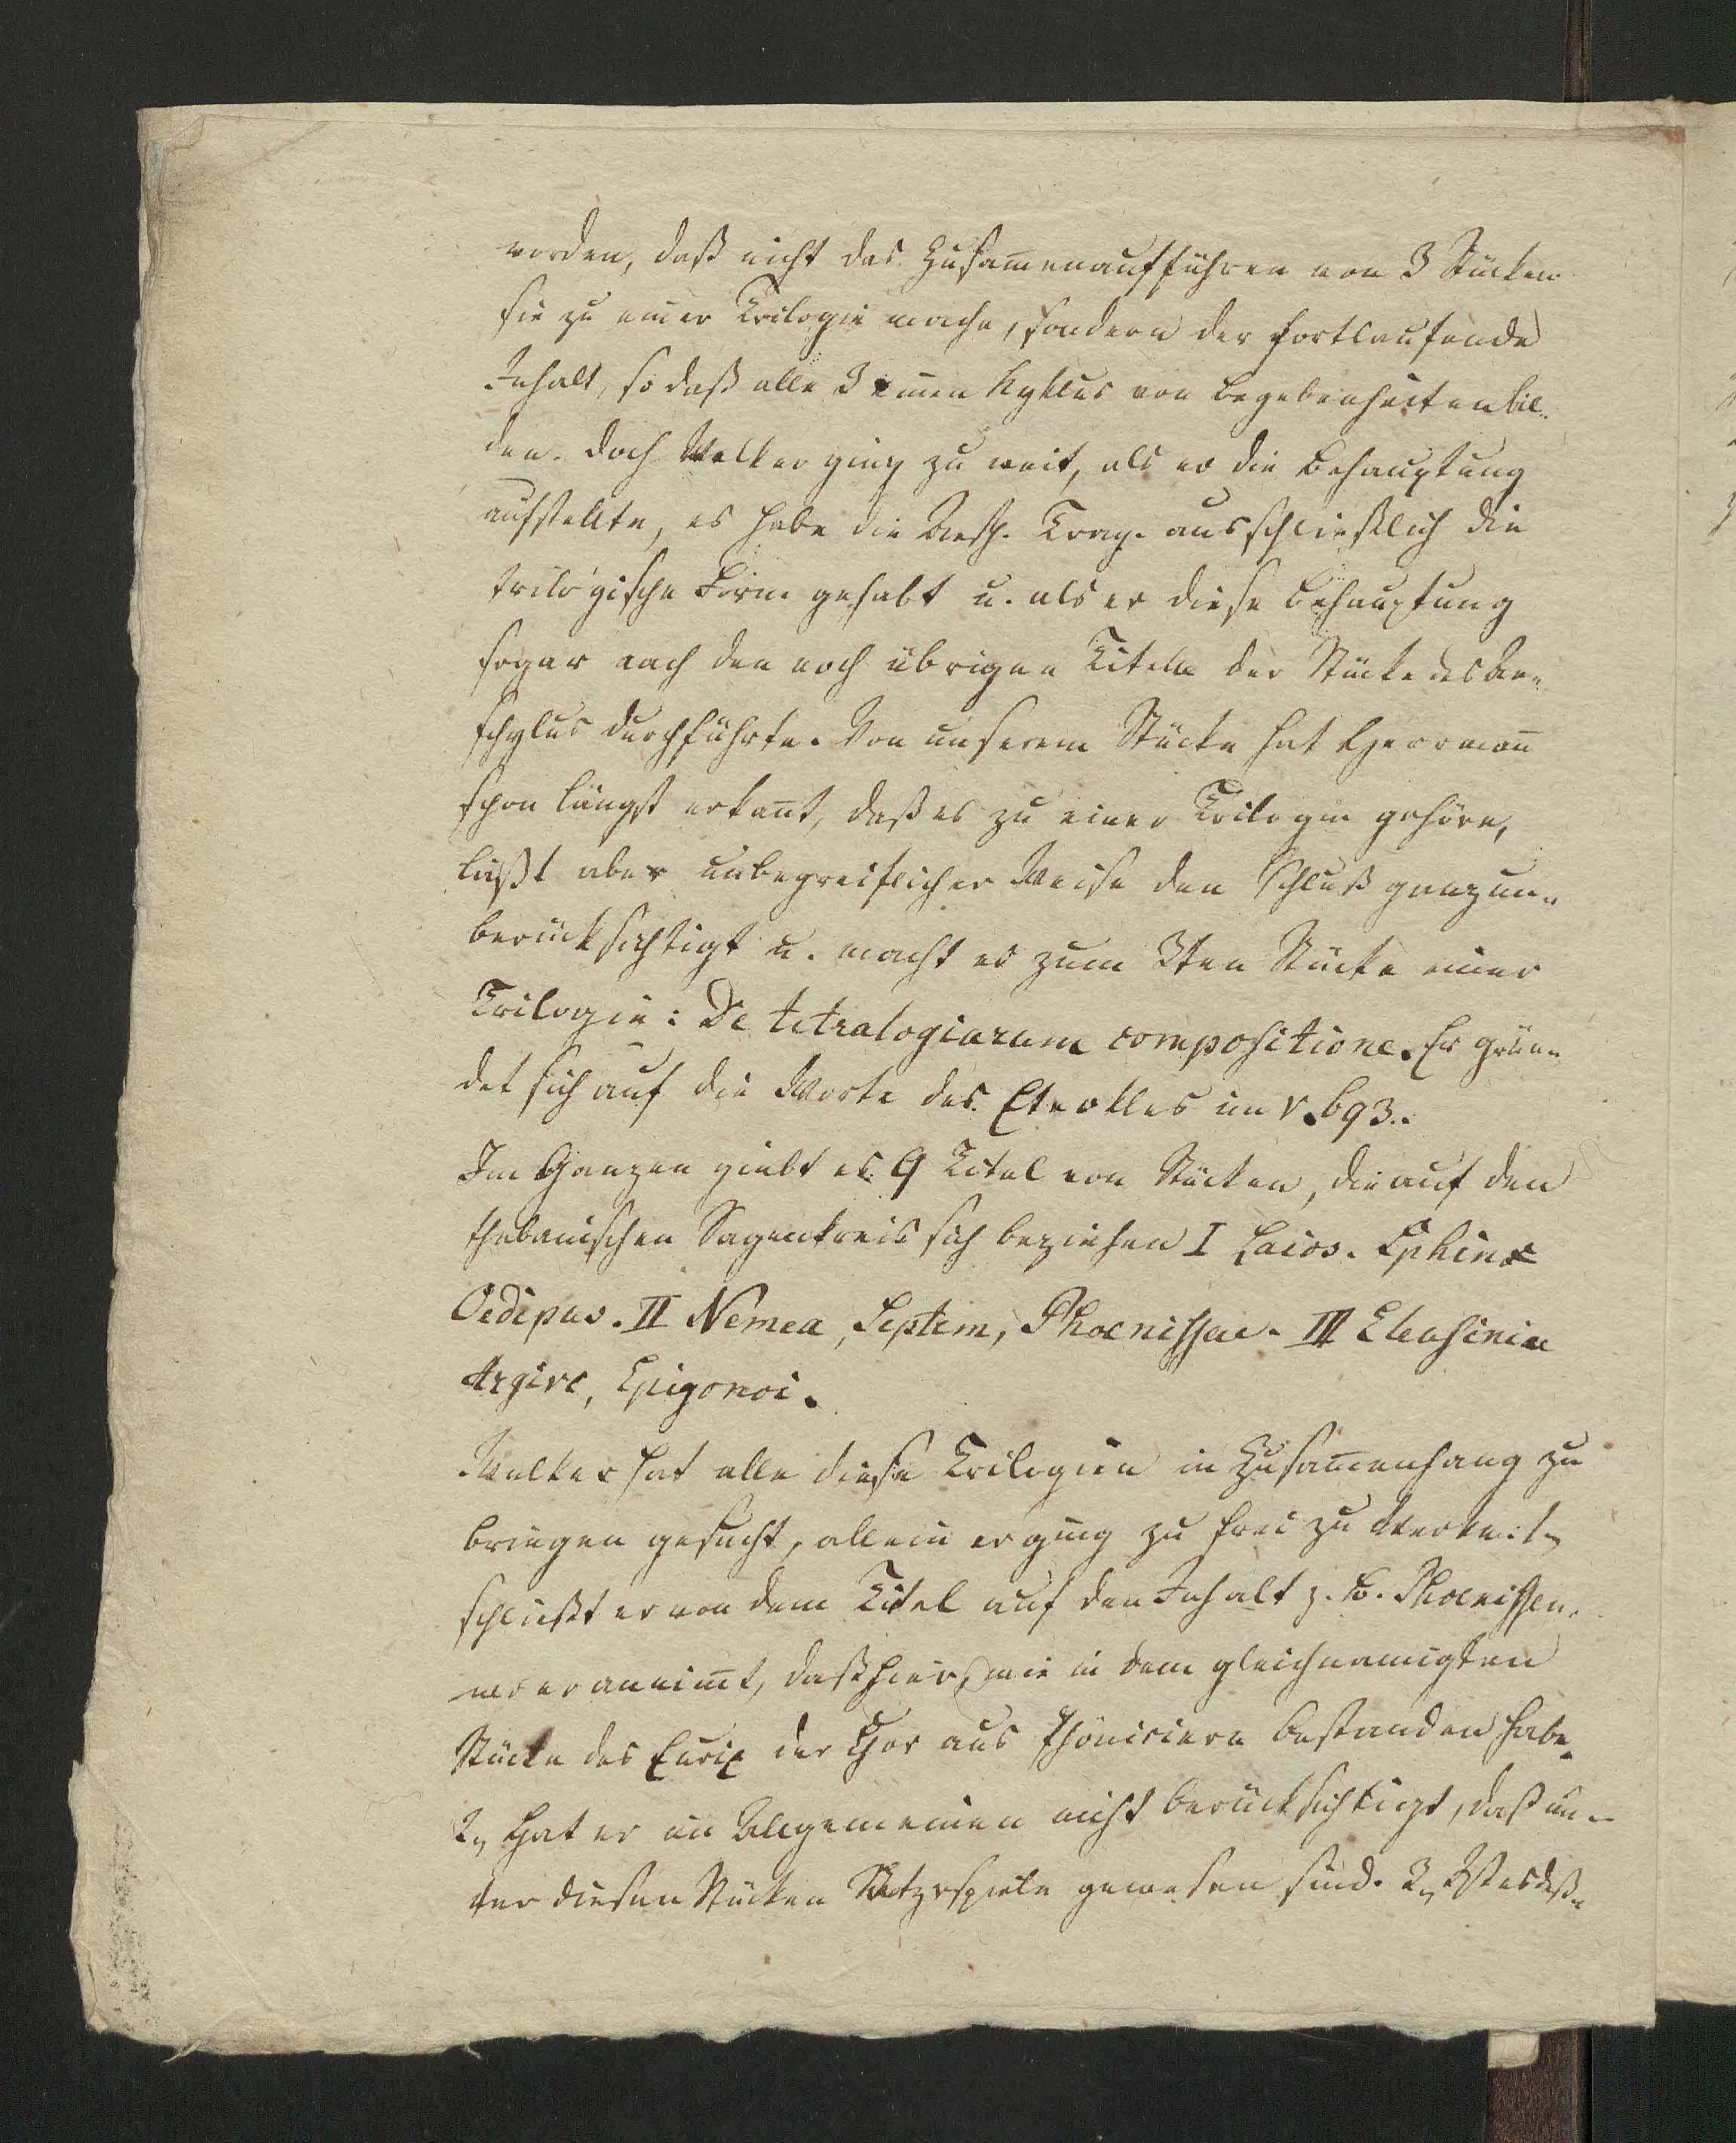 worden, daß nicht das Zusam̅enaufführen von 3 Stücken
sie zu einer Trilogie mache, sondern der fortlaufende
Inhalt, so daß alle 3 einen Kyklus von Begebenheiten bil-
den. Doch Welker ging zu weit, als er die Behauptung
aufstellte, es habe die Aesch. Trag. ausschließlich die
trilogische Form gehabt u. als er diese Behauptung
sogar nach den noch übrigen Titeln der Stücke des Ae-
schylus durchführte. Von unserem Stücke hat Herrman̅
schon längst erkan̅t, daß es zu einer Trilogie gehöre,
läßt aber unbegreiflicher Weise den Schluß ganz un-
berücksichtigt u. macht es zum 3ten Stücke einer
Trilogie: De tetralogiarum compositione. Er grün-
det sich auf die Worte des Eteokles im V. 693.
Im Ganzen giebt es 9 Titel von Stücken, die auf den
thebanischen Sagenkreis sich beziehen I Laios. Sphinx
Oedipus. II Nemea, Septem, Phoenissae. III Eleusinia
Argive, Epigonoi.
Welker hat alle diese Trilogien in Zusam̅enhang zu
bringen gesucht, allein er ging zu frei zu Werke: 1,
schließt er von dem Titel auf den Inhalt z. B. Phoenissen,
wo er annim̅t, daß hier, wie in dem gleichnamigten
Stücke des Eurip der Chor aus Phöniciern bestanden habe.
2, Hat er im Allgemeinen nicht berücksichtigt, daß un-
ter diesen Stücken Satyrspiele gewesen sind. 3,